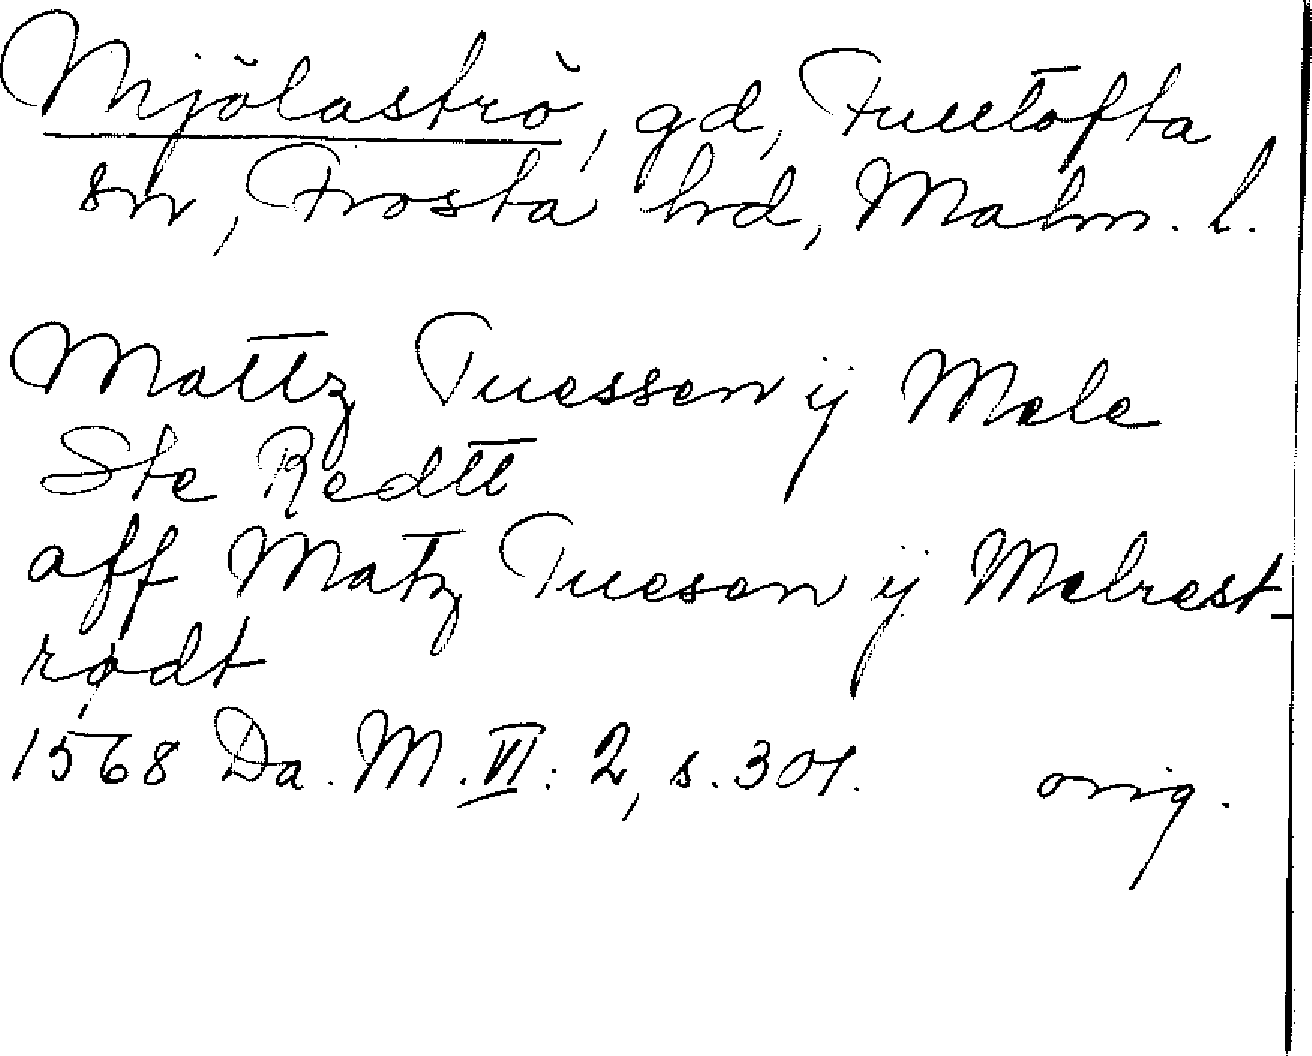 Mjölaströ, gd, Fulltofta
sn, Frosta hrd, Malm. l.
Mattz Tuessen ij Mele
Ste Redtt
aff Matz Tuesen ij Melrest
rødt
1568 Da. M. VI: 2, s. 301. orig.